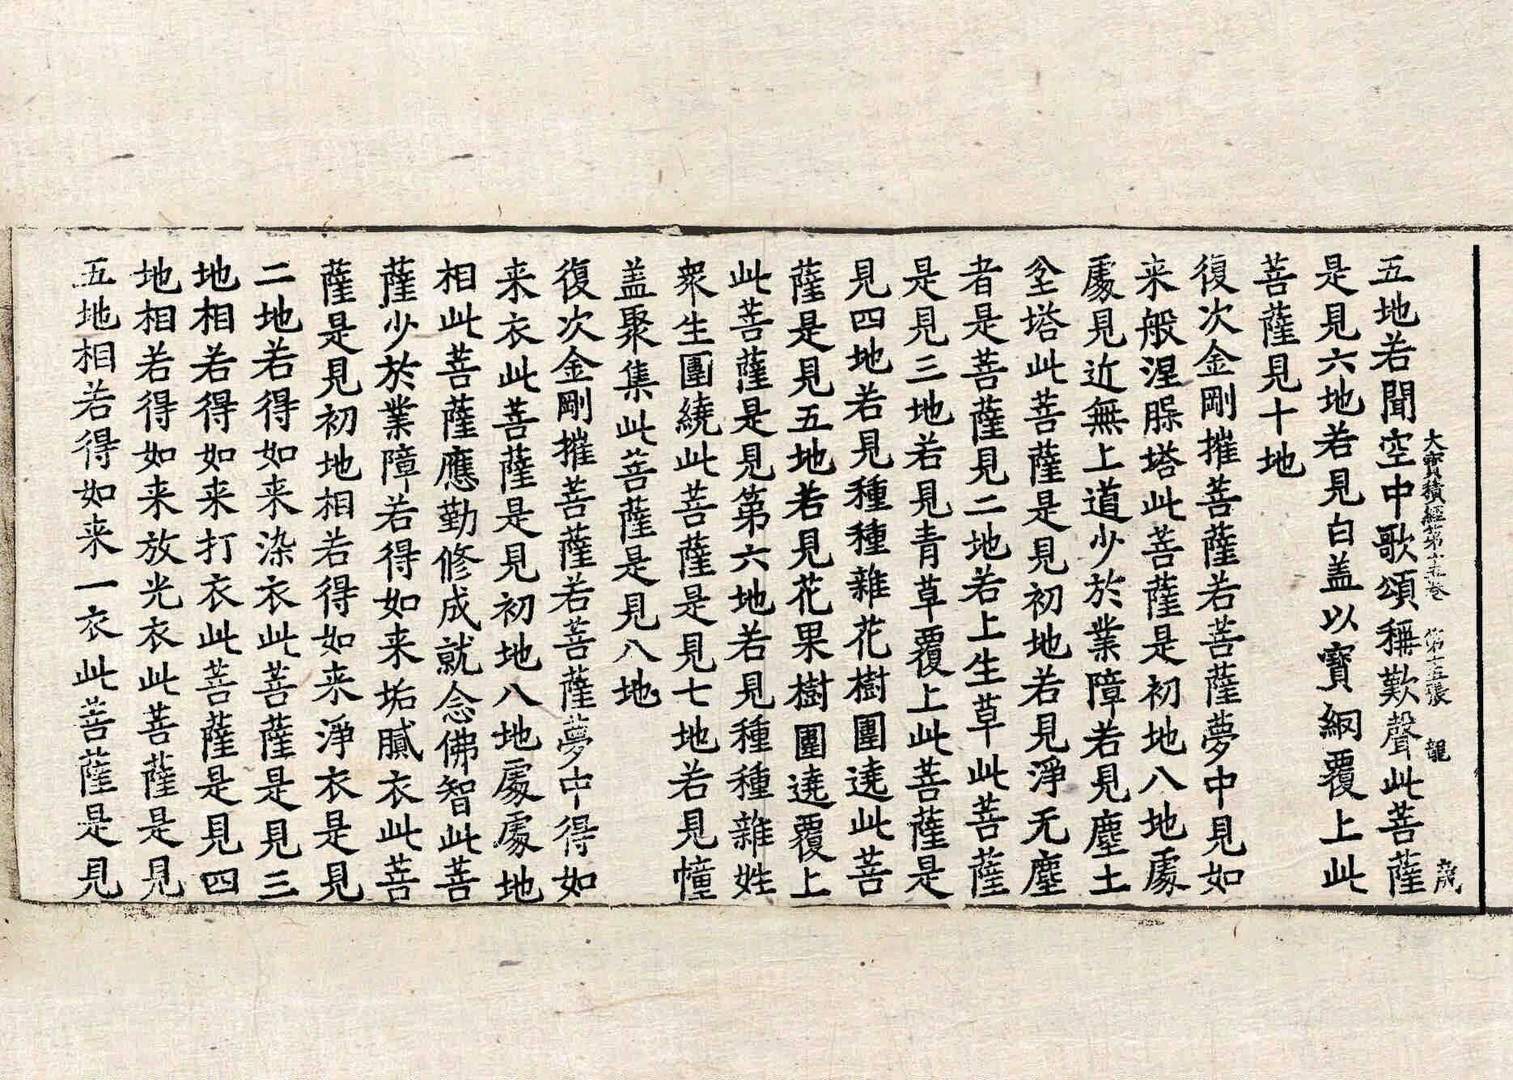 大寶積經第十五卷 第十五張 龍
五地若聞空中歌頌稱歎聲此菩薩
是見六地若見白盖以寶網覆上此
菩薩見十地
復次金剛摧菩薩若菩薩夢中見如
来般涅槃塔此菩薩是初地八地處
處見近無上道少於業障若見塵土
坌塔此菩薩是見初地若見淨无塵
者是菩薩見二地若上生草此菩薩
是見三地若見青草覆上此菩薩是
見四地若見種種雜花樹圍遶此菩
薩是見五地若見花果樹圍遶覆上
此菩薩是見第六地若見種種雜姓
衆生圍繞此菩薩是見七地若見幢
盖聚集此菩薩是見八地
復次金剛摧菩薩若菩薩夢中得如
来衣此菩薩是見初地八地處處地
相此菩薩應勤修成就念佛智此菩
薩少於業障若得如来垢膩衣此菩
薩是見初地相若得如来淨衣是見
二地若得如来染衣此菩薩是見三
地相若得如来打衣此菩薩是見四
地相若得如来放光衣此菩薩是見
五地相若得如来一衣此菩薩是見